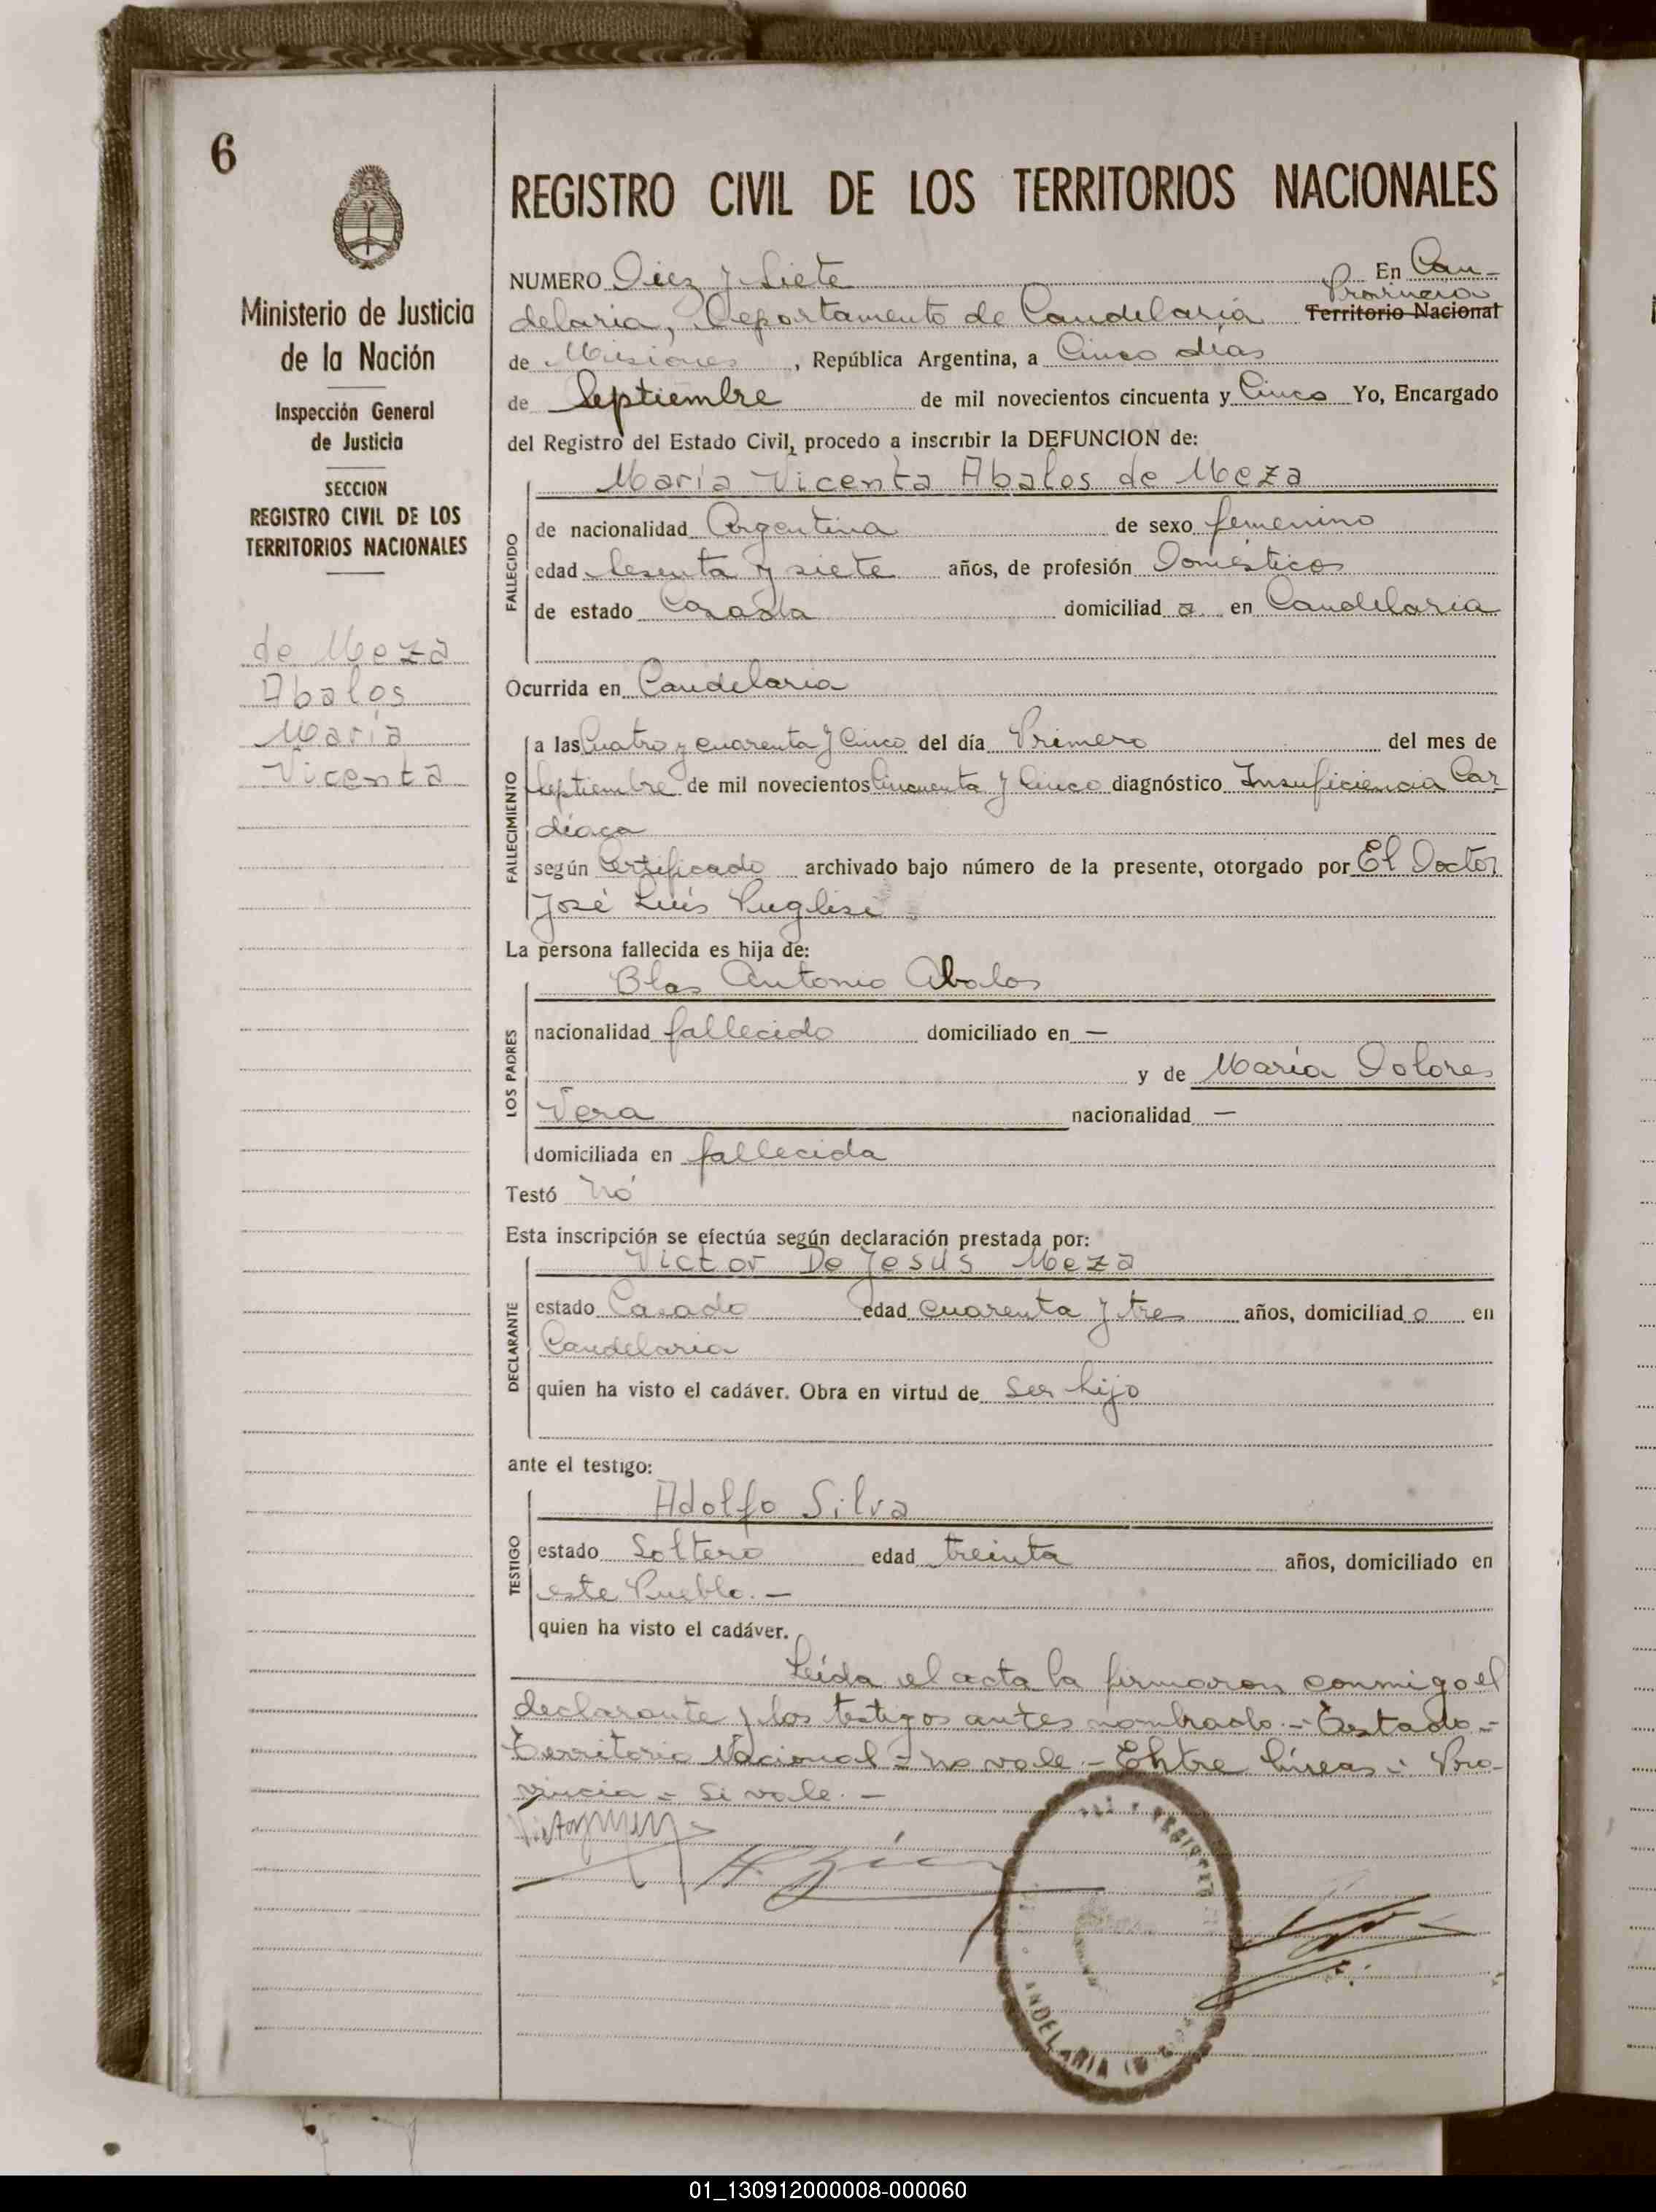 6
Ministerio de Justicia
de la Nación
Inspección General
de Justicia
SECCION
REGISTRO CIVIL DE LOS
TERRITORIOS NACIONALES
de Meza
Abalos
María
Vicenta
REGISTRO CIVIL DE LOS TERRITORIOS NACIONALES
NUMERO Diez y Siete En Can-
Provincia
delaria, Departamento de Candelaria Territorio Nacional
de Misiones, República Argentina, a Cinco días
de Septiembre de mil novecientos cincuenta y Cinco Yo, Encargado
del Registro del Estado Civil, procedo a inscribir la DEFUNCION de:
María Vicenta Abalos de Meza
FALLECIDO
de nacionalidad Argentina de sexo femenino
edad Sesenta y siete años, de profesión Doméstica
de estado Casada domiciliad a en Candelaria
Ocurrida en Candelaria
FALLECIMIENTO
a las Cuatro y cuarenta y Cinco del día Primero del mes de
Septiembre de mil novecientos Cincuenta y Cinco diagnóstico Insuficiencia Car-
díaca
según Certificado archivado bajo número de la presente, otorgado por El Doctor
José Luis Puglisi
La persona fallecida es hija de:
LOS PADRES
Blas Antonio Abalos
nacionalidad fallecido domiciliado en —
y de María Dolores
Vera nacionalidad —
domiciliada en fallecida
Testó nó
Esta inscripción se efectúa según declaración prestada por:
DECLARANTE
Victor De Jesús Meza
estado Casado edad Cuarenta y tres años, domiciliad o en
Candelaria
quien ha visto el cadáver. Obra en virtud de ser hijo
ante el testigo:
TESTIGO
Adolfo Silva
estado Soltero edad treinta años, domiciliado en
este Pueblo.—
quien ha visto el cadáver.
Leída el acta la firmaron conmigo el
declarante y los testigos antes nombrado.- Testado-
Territorio Nacional = no vale.- Entre líneas: Pro-
vincia = si vale.-
ANDELARIA
01_130912000008-000060